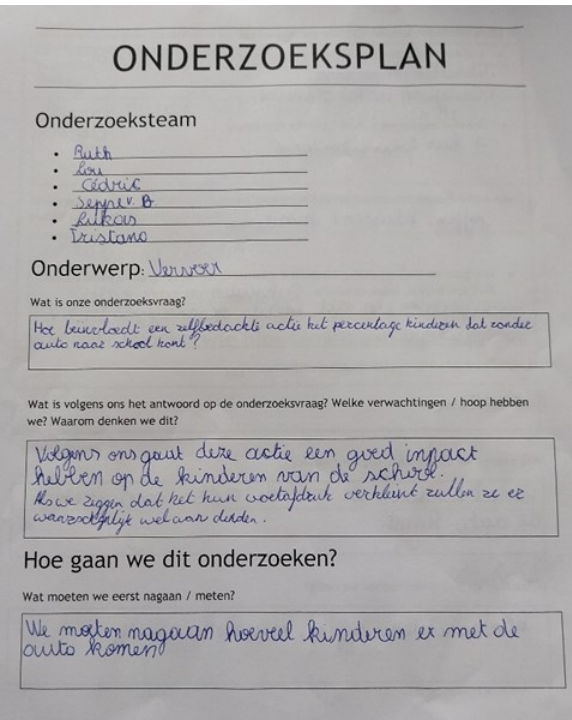 ONDERZOEKSPLAN
Onderzoeksteam
• Ruth
• Lou
• Cédric
• Seppe v. B
• Lukas
• Tristano
Onderwerp: Vervoer
Wat is onze onderzoeksvraag?
Hoe beinvloedt een zelfbedachte actie het percentage kinderen dat zonder
auto naar school komt?
Wat is volgens ons het antwoord op de onderzoeksvraag? Welke verwachtingen / hoop hebben
we? Waarom denken we dit?
Volgens ons gaat deze actie een goed inpact
hebben op de kinderen van de school.
Als we zeggen dat het hun voetafdruk verkleint zullen ze er
waarschijnlijk wel aan denken.
Hoe gaan we dit onderzoeken?
Wat moeten we eerst nagaan / meten?
We moeten nagaan hoeveel kinderen er met de
auto komen